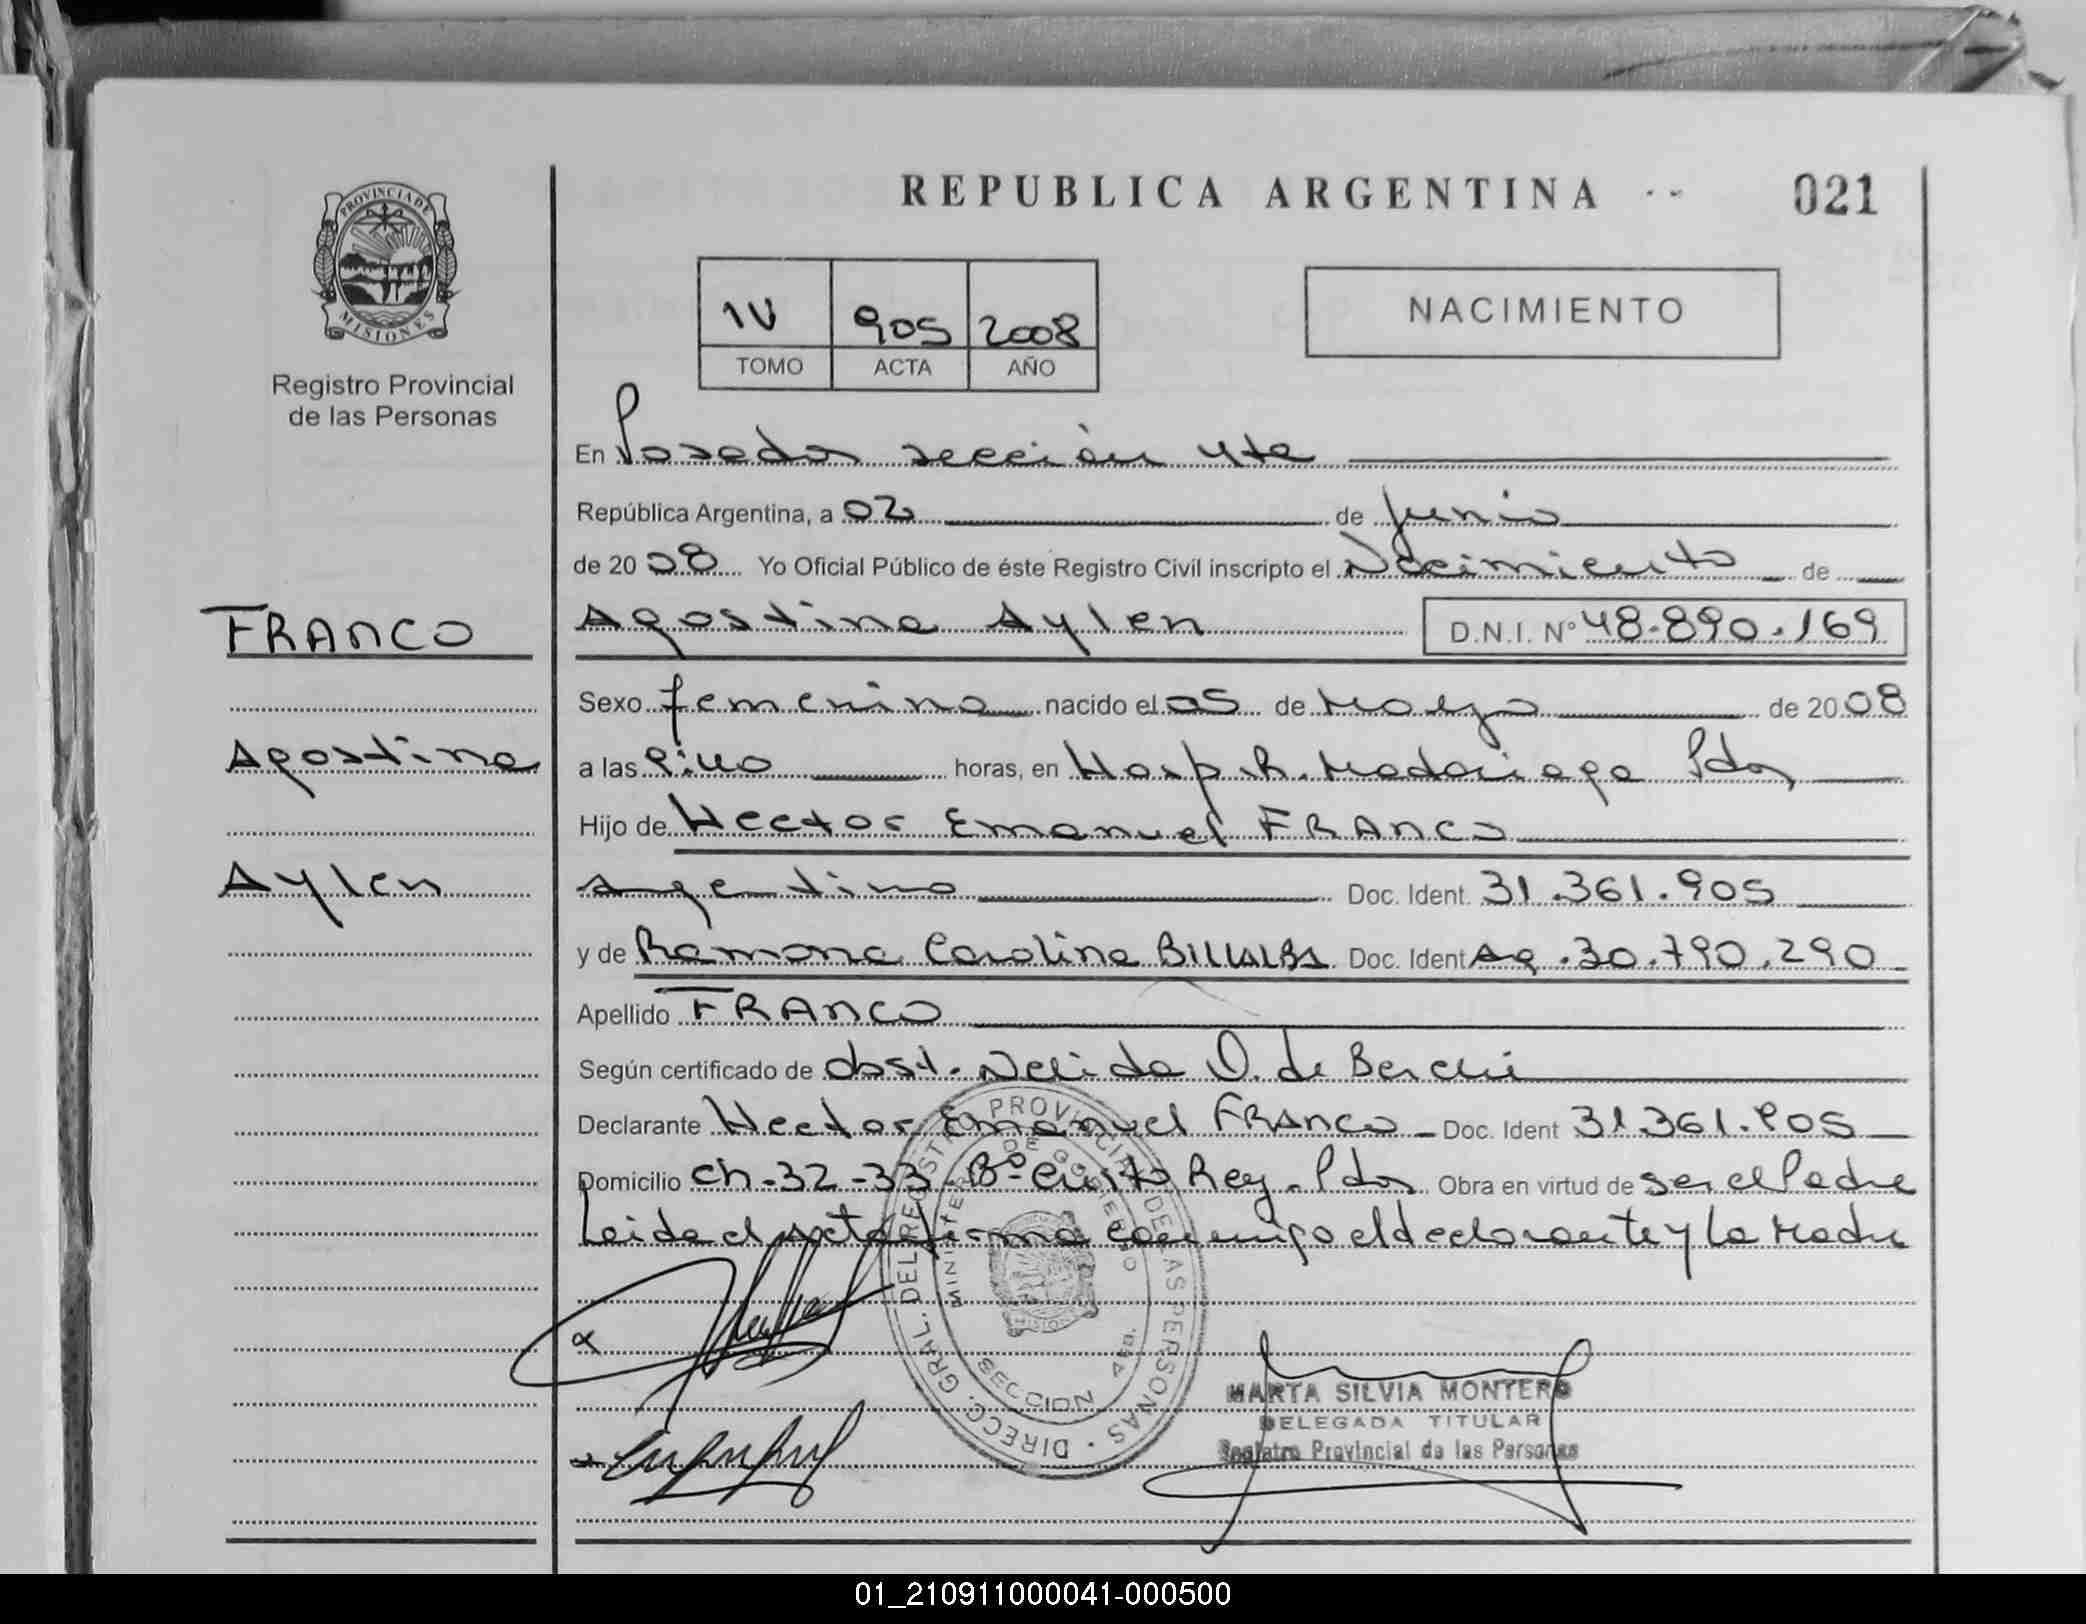 REPUBLICA ARGENTINA
021
PROVINCIA DE
MISIONES
Registro Provincial
de las Personas
IV 905 2008
TOMO ACTA AÑO
NACIMIENTO
En Posadas sección 4ta
República Argentina, a 02 de Junio
de 2008 Yo Oficial Público de éste Registro Civil inscripto el Nacimiento de
FRANCO
Agostina Aylen D.N.I. Nº 48.890.169
Sexo femenino nacido el 05 de Marzo de 2008
Agostina
a las horas, en Hosp. R. Madariaga Pdas
Hijo de Hector Emanuel FRANCO
Aylen
Argentino Doc. Ident. 31.361.905
y de Ramona Carolina BILLALBA Doc. Ident Ag. 30.790.290
Apellido FRANCO
Según certificado de obst. Nelida O. de
Declarante Hector Emanuel FRANCO Doc. Ident 31.361.905
Domicilio Ch. 32-33 Bº Cristo Rey. Pdas Obra en virtud de ser el Padre
Leida el Acta firma conmigo el declarante y la Madre
DIRECC. GRAL. DEL REGISTRO PROVINCIAL DE LAS PERSONAS
MINISTERIO DE GOBIERNO
MISIONES
SECCION 4ta.
MARTA SILVIA MONTERO
DELEGADA TITULAR
Registro Provincial de las Personas
01_210911000041-000500